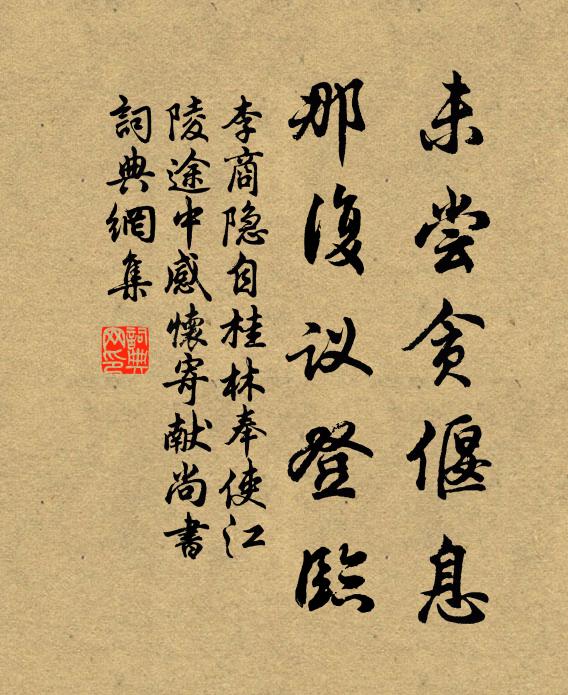 未尝贪偃息
那復议登臨
李商隐自桂林奉使江
陵途中感懷寄献尚書
詞典網集
詞典网印